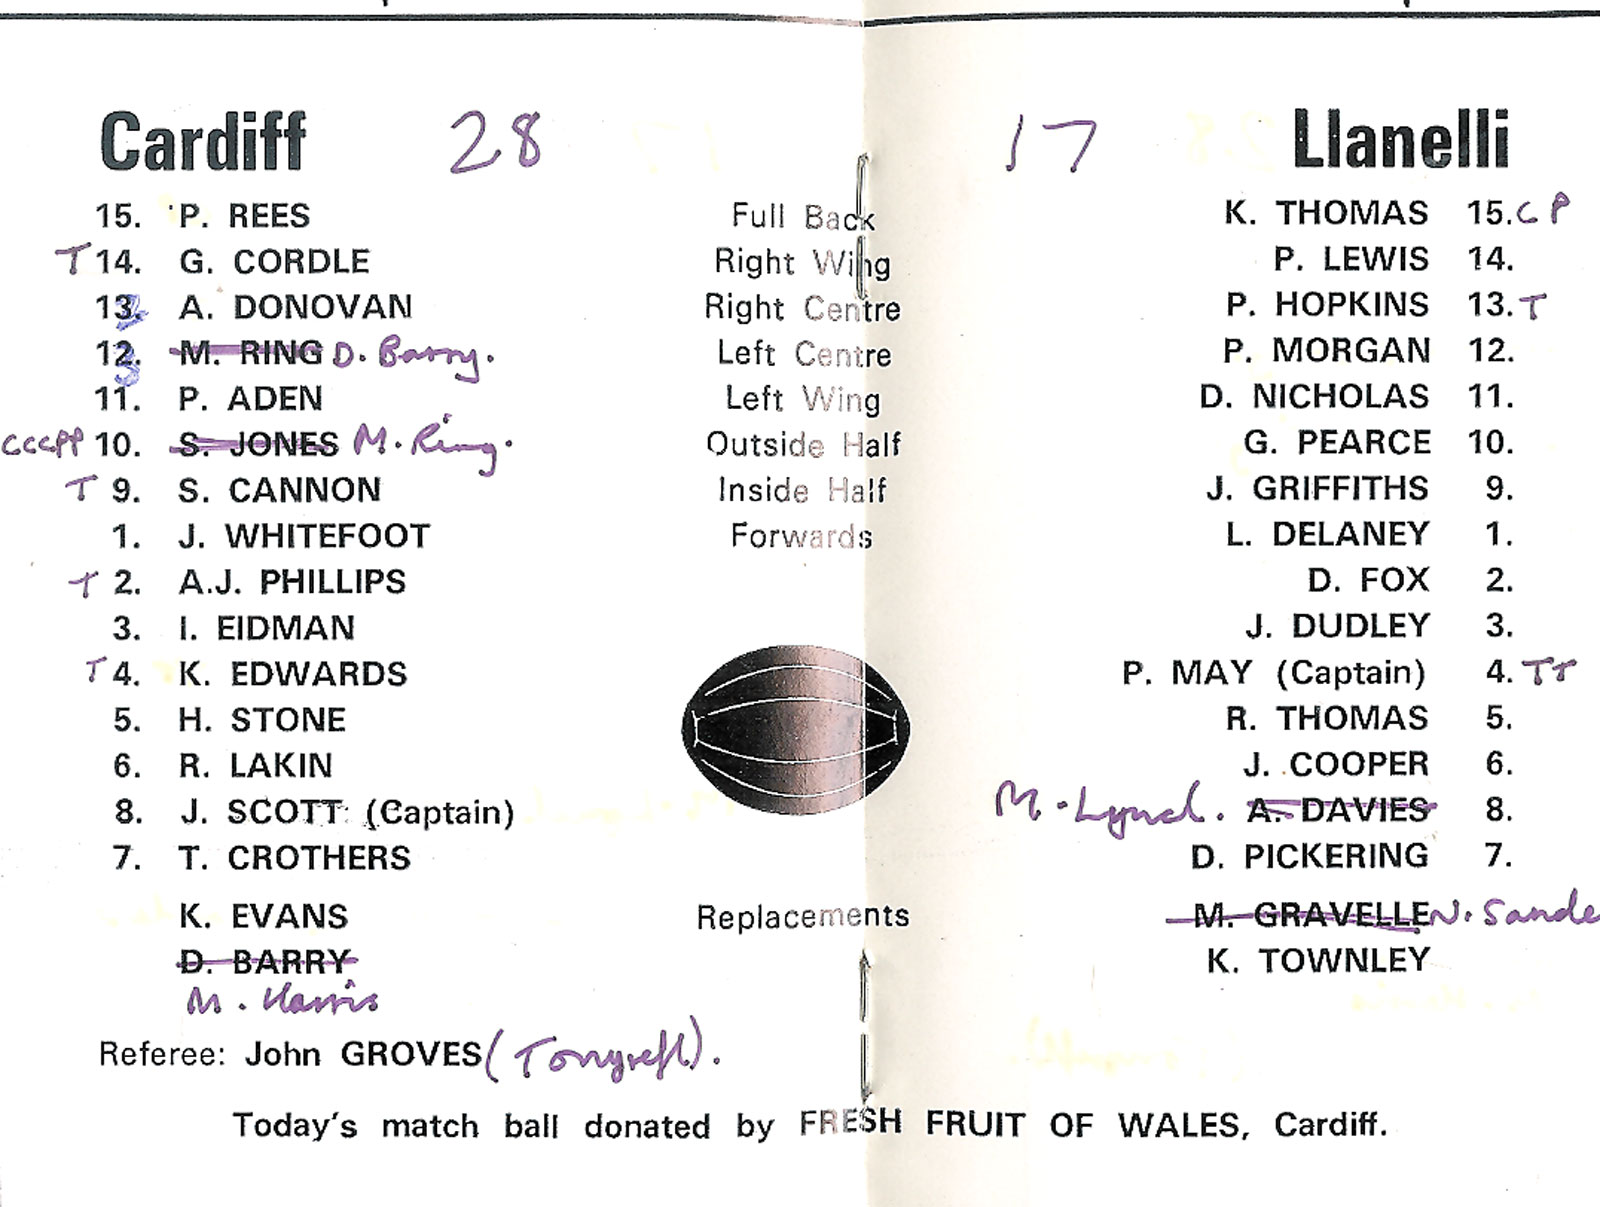 Cardiff 28 17 Llanelli
15. P. REES Full Back K. THOMAS 15. C P
T 14. G. CORDLE Right Wing P. LEWIS 14.
13. A. DONOVAN Right Centre P. HOPKINS 13. T
12. M. RING D. Barry. Left Centre P. MORGAN 12.
11. P. ADEN Left Wing D. NICHOLAS 11.
CCCPP 10. S. JONES M. Ring. Outside Half G. PEARCE 10.
T 9. S. CANNON Inside Half J. GRIFFITHS 9.
1. J. WHITEFOOT Forwards L. DELANEY 1.
T 2. A.J. PHILLIPS D. FOX 2.
3. I. EIDMAN J. DUDLEY 3.
T 4. K. EDWARDS P. MAY (Captain) 4. TT
5. H. STONE R. THOMAS 5.
6. R. LAKIN J. COOPER 6.
8. J. SCOTT (Captain) M. Lynch. A. DAVIES 8.
7. T. CROTHERS D. PICKERING 7.
K. EVANS Replacements M. GRAVELLE N. Sande
D. BARRY K. TOWNLEY
M. Harris
Referee: John GROVES (Tonyrefl).
Today's match ball donated by FRESH FRUIT OF WALES, Cardiff.